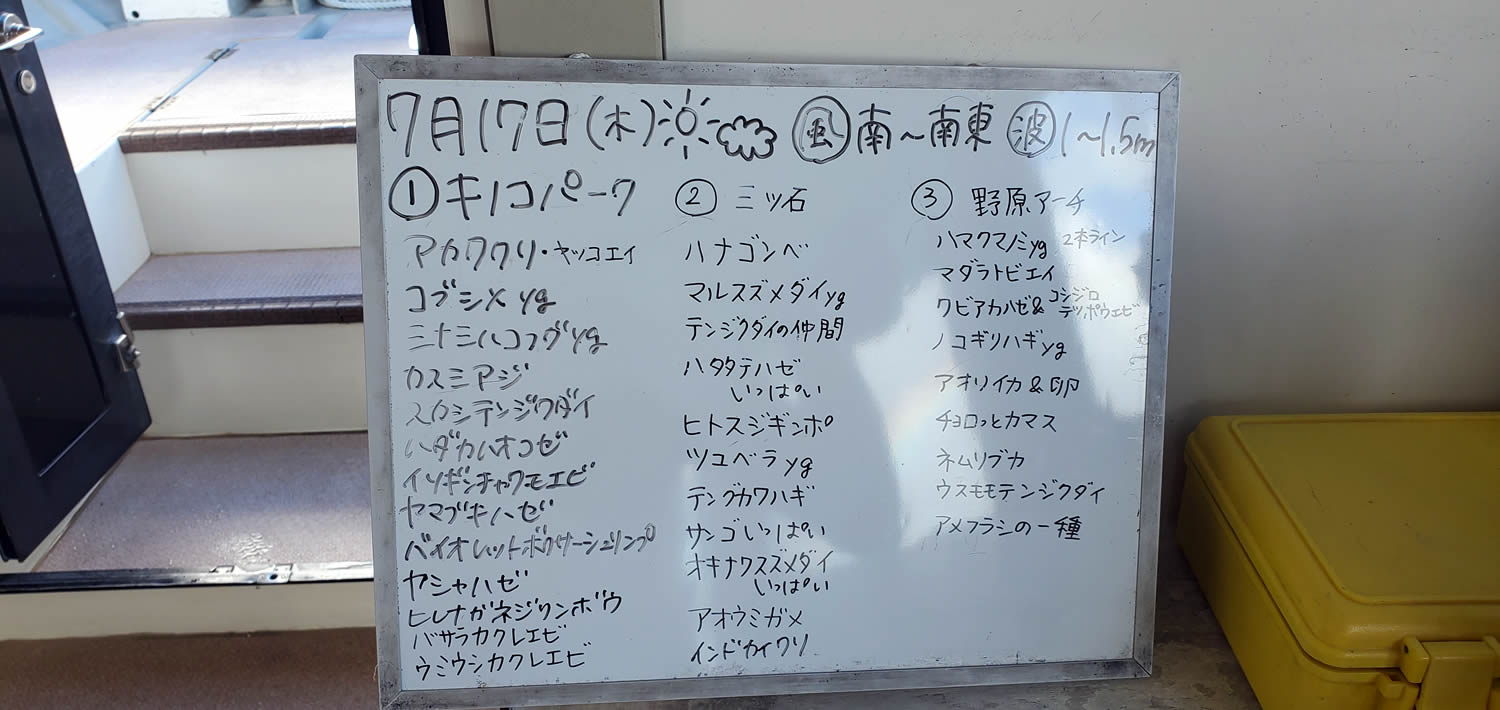 7月17日(木) 風 南〜南東 波 1〜1.5m
① キノコパーク
アカククリ・ヤッコエイ
コブシメyg
ミナミハコフグyg
カスミアジ
スカシテンジクダイ
ハダカハオコゼ
イソギンチャクモエビ
ヤマブキハゼ
バイオレットボクサーシュリンプ
ヤシャハゼ
ヒレナガネジリンボウ
バサラカクレエビ
ウミウシカクレエビ
② 三ツ石
ハナゴンベ
マルスズメダイyg
テンジクダイの仲間
ハタタテハゼ
いっぱい
ヒトスジギンポ
ツユベラyg
テングカワハギ
サンゴいっぱい
オキナワスズメダイ
いっぱい
アオウミガメ
インドカイワリ
③ 野原アーチ
ハマクマノミyg 2本ライン
マダラトビエイ
クビアカハゼ&コシジロ
テッポウエビ
ノコギリハギyg
アオリイカ&卵
チョロっとカマス
ネムリブカ
ウスモモテンジクダイ
アメフラシの一種